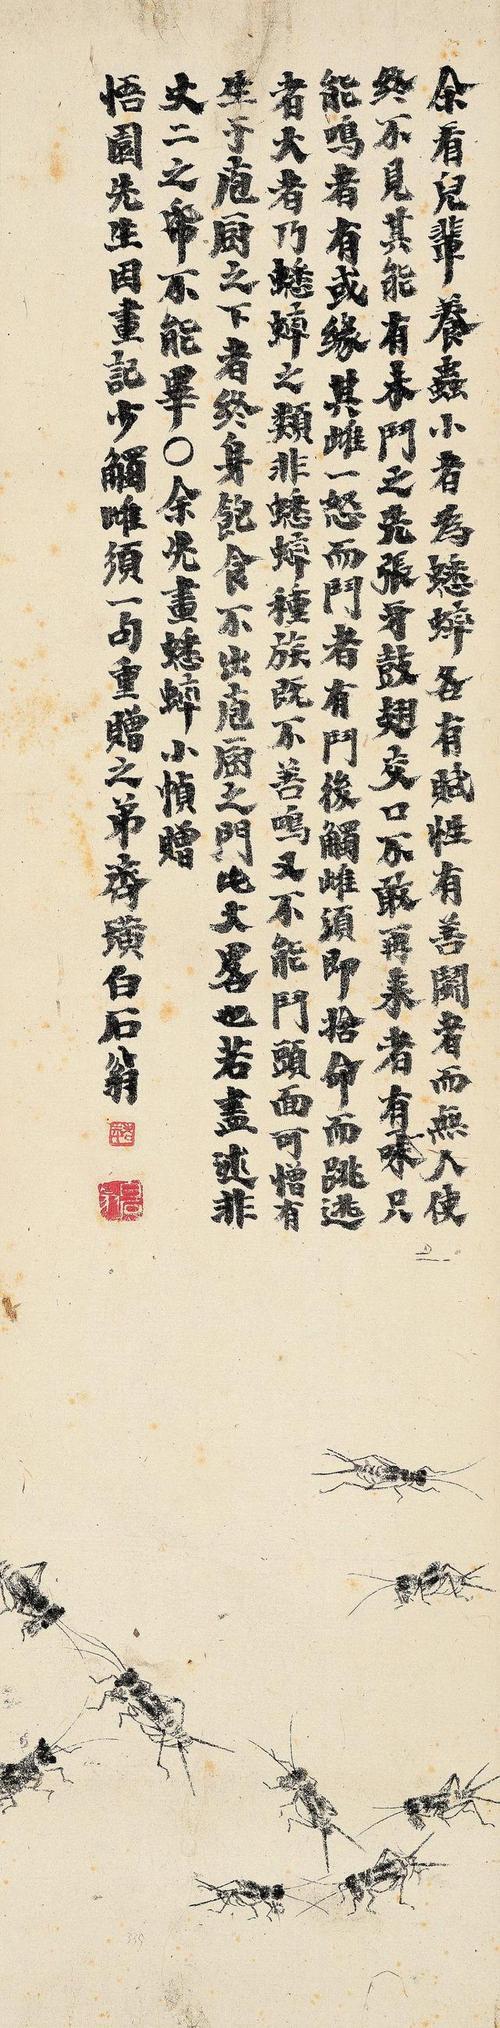 余看兒輩養蟲小者為蟋蟀各有賦性有善鬭者而無人使
終不見其能有未鬥之先張牙鼓翅交口不敢再來者有味只
能鳴者有或緣其雌一怒而鬥者有鬥後觸雌須即捨命而跳逃
者大者乃蟋蟀之類非蟋蟀種族既不善鳴又不能鬥頭面可憎有
生于庖廚之下者終身飽食不出庖廚之門此大畧也若盡述非
丈二之帋不能畢○余先畫蟋蟀小幀贈
悟園先生因畫記少觸雌須一句重贈之弟齊璜白石翁